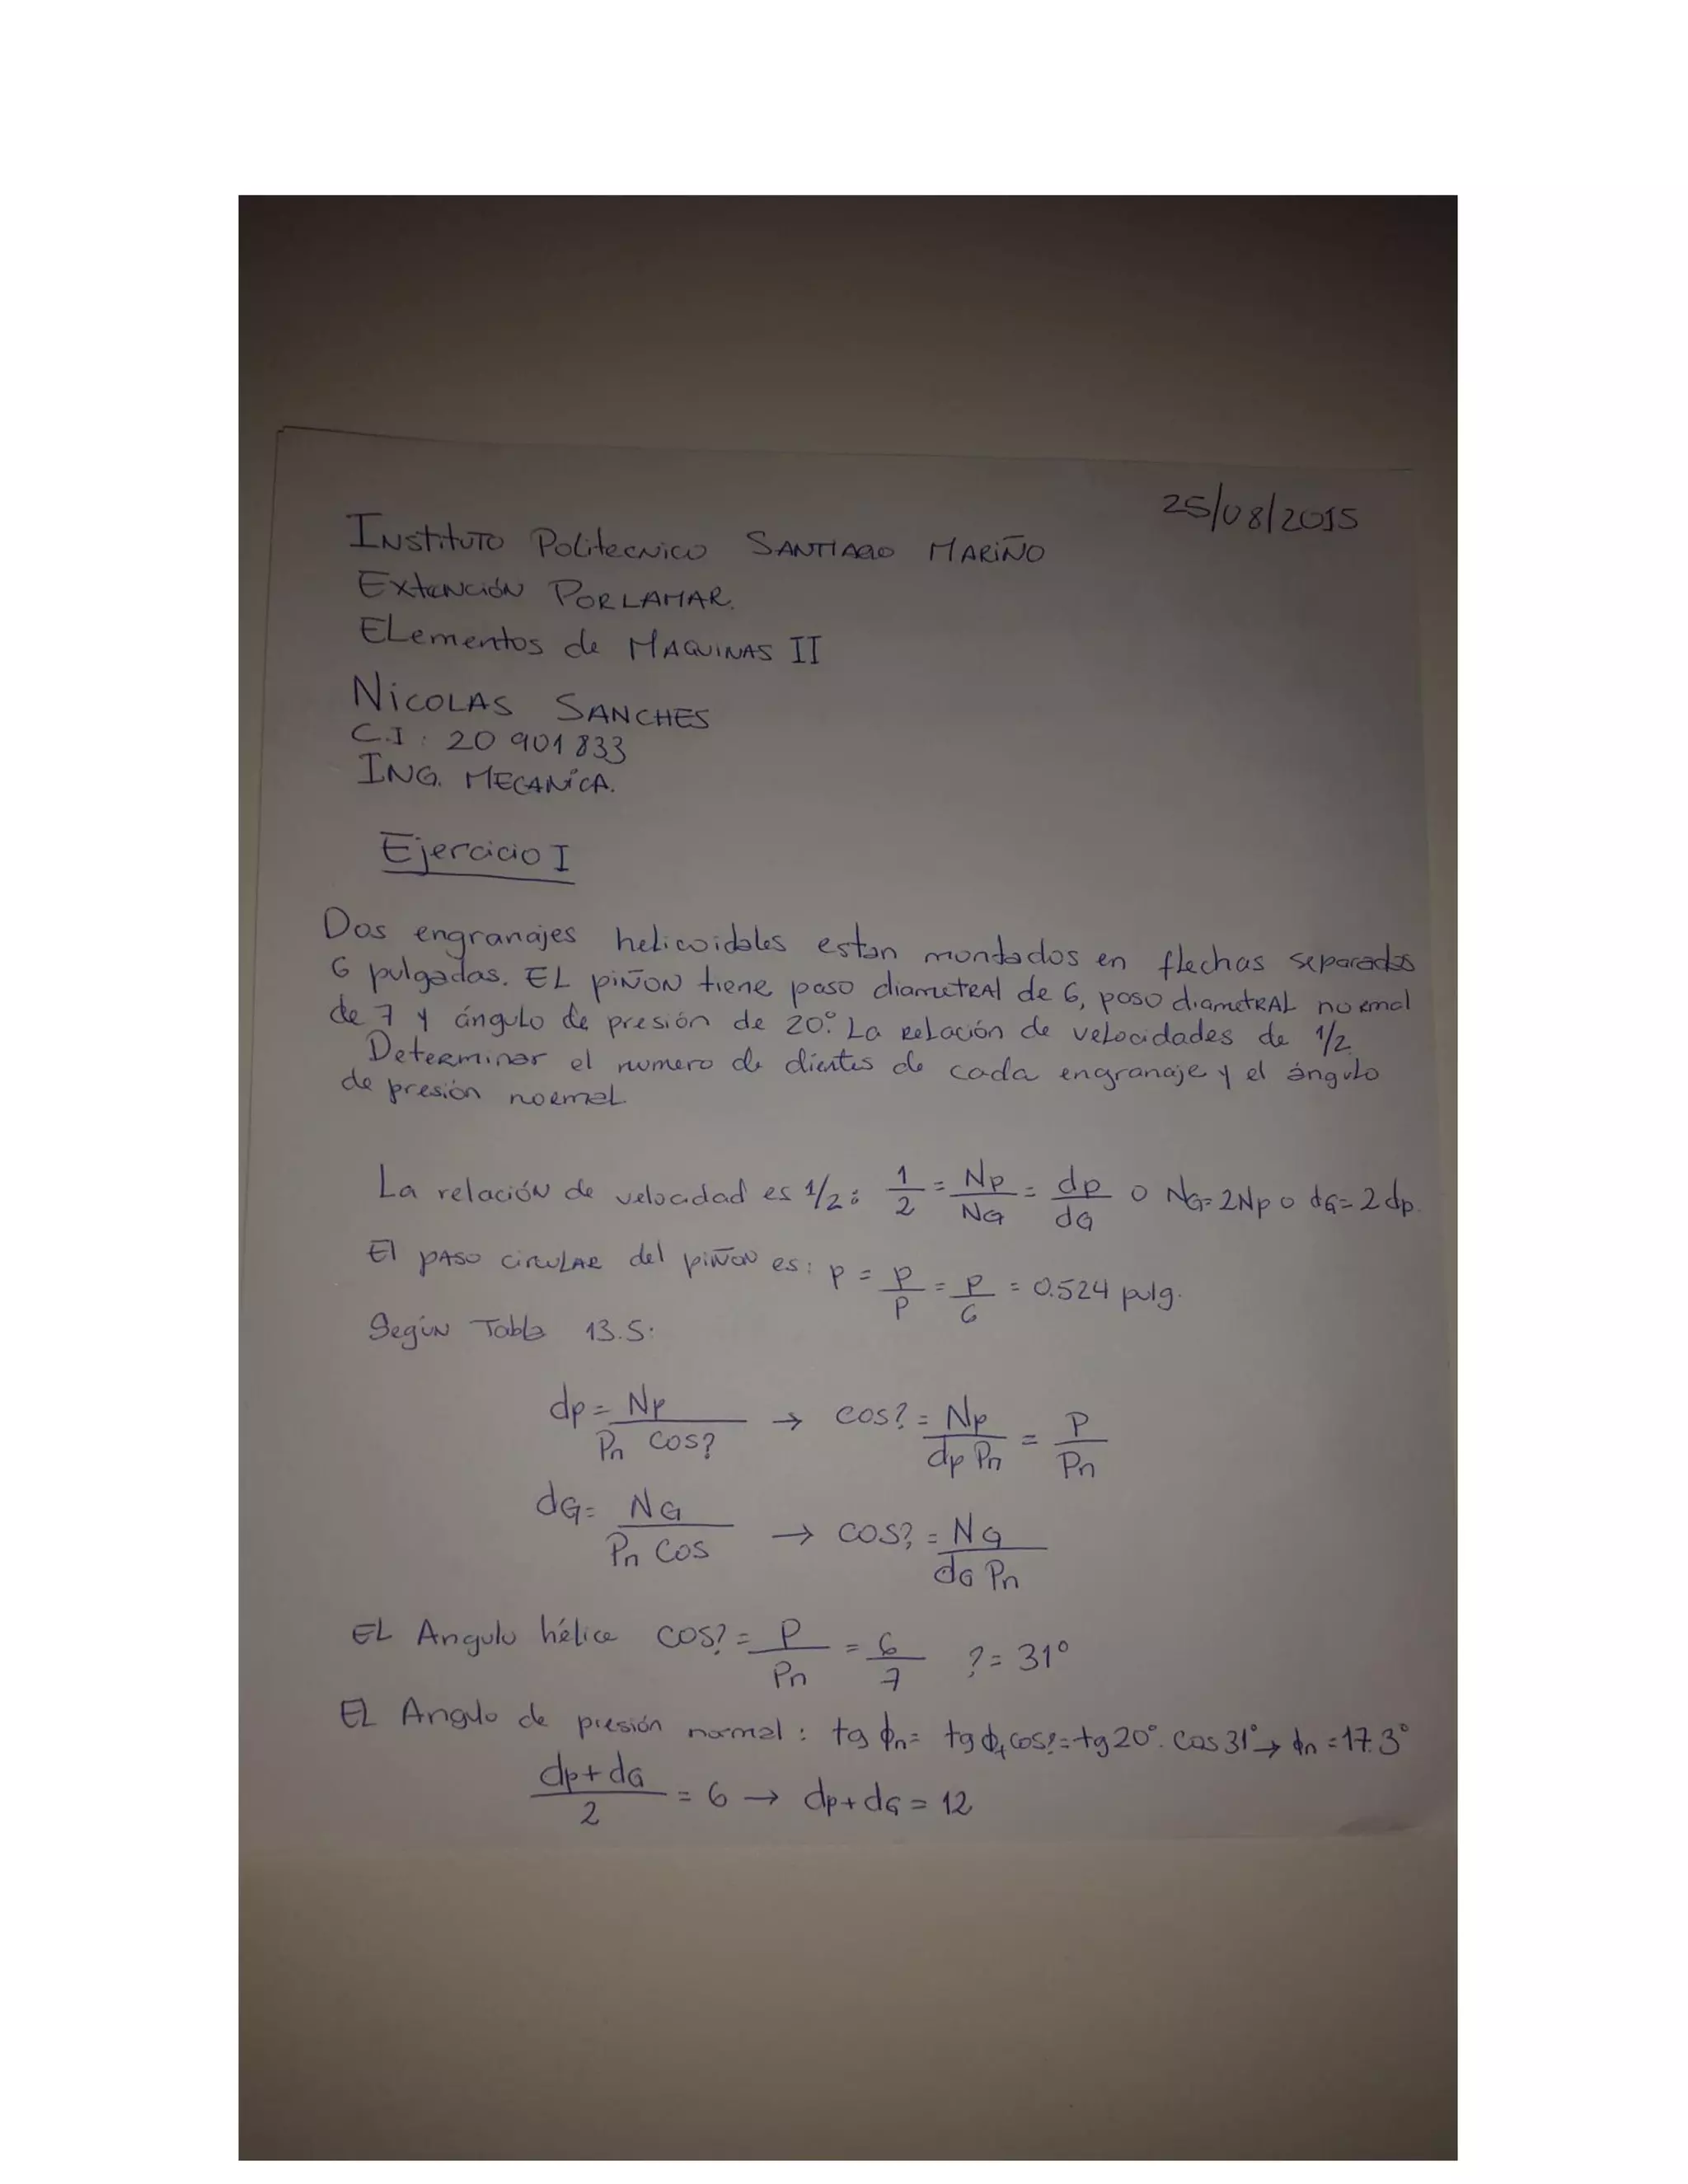 25/08/2015
Instituto Politecnico SANTIAGO MARIÑO
Extención PORLAMAR.
Elementos de MAQUINAS II
NICOLAS SANCHES
C.I: 20 901 833
ING. MECANICA.
Ejercicio I
Dos engranajes helicoidales estan montados en flechas separadas
6 pulgadas. EL piñoN tiene paso diametral de 6, paso diametral normal
de 7 y ángulo de presión de 20°. La relación de velocidades de 1/2.
Determinar el numero de dientes de cada engranaje y el ángulo
de presión normal.
La relación de velocidad es 1/2: 1/2 = Np/NG = dp/dG o NG=2Np o dG=2dp.
El paso circular del piñon es: p = p/P = P/6 = 0.524 pulg.
Según Tabla 13.5:
dp = Np/Pn cos? → cos? = Np/dp Pn = P/Pn
dG = NG/Pn cos → cos? = NG/dG Pn
EL Angulo hélice cos? = P/Pn = 6/7 ? = 31°
EL Angulo de presión normal: tg ϕn = tg ϕt cos? = tg 20°. cos 31° → ϕn = 17.3°
dp+dG/2 = 6 → dp+dG = 12